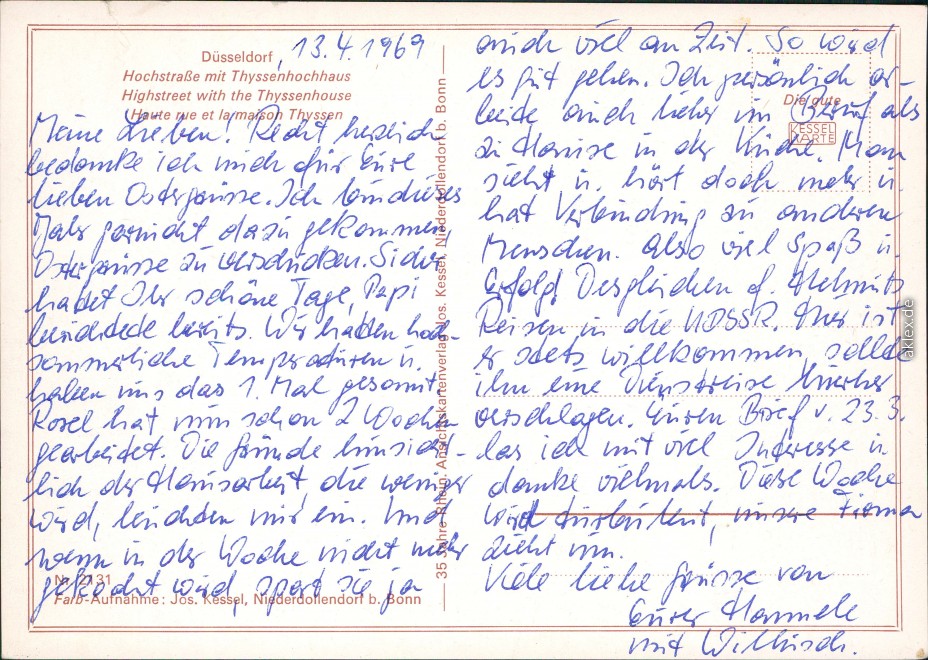 Düsseldorf, 13.4.1969
Hochstraße mit Thyssenhochhaus
Highstreet with the Thyssenhouse
Haute rue et la maison Thyssen
Meine Lieben! Recht herzlich
bedanke ich mich für Eure
lieben Ostergrüsse. Ich bin dieses
Jahr garnicht dazu gekommen,
Ostergrüsse zu verschicken. Sicher
hattet Ihr schöne Tage, Papi
berichtete bereits. Wir hatten hoch-
sommerliche Temperaturen u.
haben uns das 1. Mal gesonnt
Rosel hat nun schon 2 Wochen
gearbeitet. Die Gründe hinsicht-
lich der Hausarbeit, die weniger
wird, leuchten mir ein. Und
wenn in der Woche nicht mehr
gekocht wird, spart sie ja
Nr. 2131
Farb-Aufnahme: Jos. Kessel, Niederdollendorf b. Bonn
35 Jahre Rhein. Ansichtskartenverlag Jos. Kessel, Niederdollendorf b. Bonn
auch viel an Zeit. So wird
es gut gehen. Ich persönlich ar-
beite auch lieber im Beruf als
zu Hause in der Küche. Man
sieht u. hört doch mehr u.
hat Verbindung zu anderen
Menschen. Also viel Spaß u.
Erfolg! Desgleichen f. Helmuts
Reisen in die UDSSR. Hier ist
er stets willkommen, sollte
ihn eine Dienstreise hierher
verschlagen. Euren Brief v. 23.3.
las ich mit viel Interesse u.
danke vielmals. Diese Woche
wird turbulent, unsere Firma
zieht um.
Viele liebe Grüsse von
Eurer Hannele
mit
Die gute
KESSEL
KARTE
aklex.de